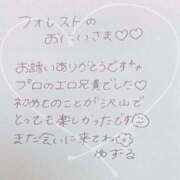 フォレストの
おにいさま♡♡
お誘いありがとうですჱ
プロのエロ兄貴でした♡
初めてのことが沢山で
とっても楽しかったです
また会いに来てね
ゆずる